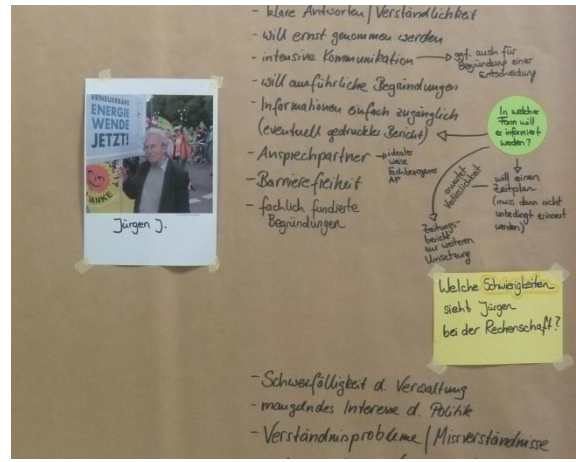 - klare Antworten / Verständlichkeit
- will ernst genommen werden
- intensive Kommunikation → ggf. auch für
Begründung einer
Entscheidung
- will ausführliche Begründungen
- Informationen einfach zugänglich
(eventuell gedruckter Bericht)
- Ansprechpartner → idealer
weise
Fachbezogener
AP
- Barrierefreiheit
- fachlich fundierte
Begründungen
In welcher
Form will
er informiert
werden?
erwartet
Verlässlichkeit
will einen
Zeitplan
(muss dann nicht
unbedingt erinnert
werden)
Zeitungs-
bericht
zur weiteren
Umsetzung
ERNEUERBARE
ENERGIE
WENDE
JETZT!
DANKE
Jürgen J.
Welche Schwierigkeiten
sieht Jürgen
bei der Rechenschaft?
- Schwerfälligkeit d. Verwaltung
- mangelndes Interesse d. Politik
- Verständnisprobleme / Missverständnisse